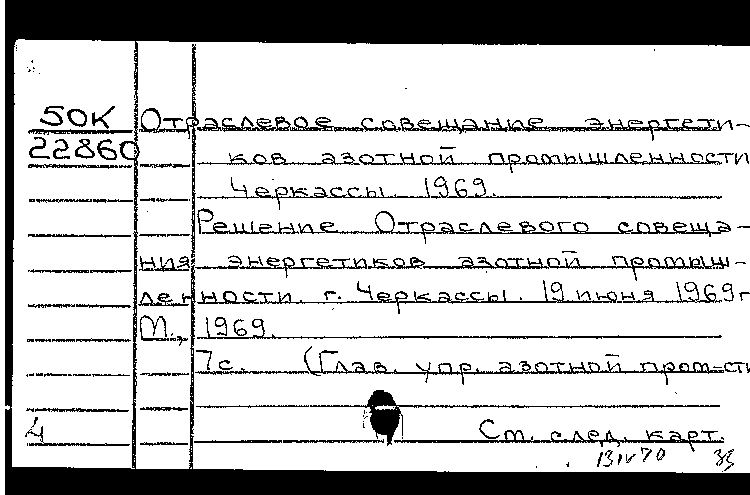 50К Отраслевое совещание энергети-
22860 ков азотной промышленности
Черкассы. 1969.
Решение Отраслевого совеща-
ния энергетиков азотной промыш-
ленности. г. Черкассы. 19 июня 1969г
М., 1969.
7с. (Глав. упр. азотной пром-сти
4 Ст. след. карт.
13 IV 70 33